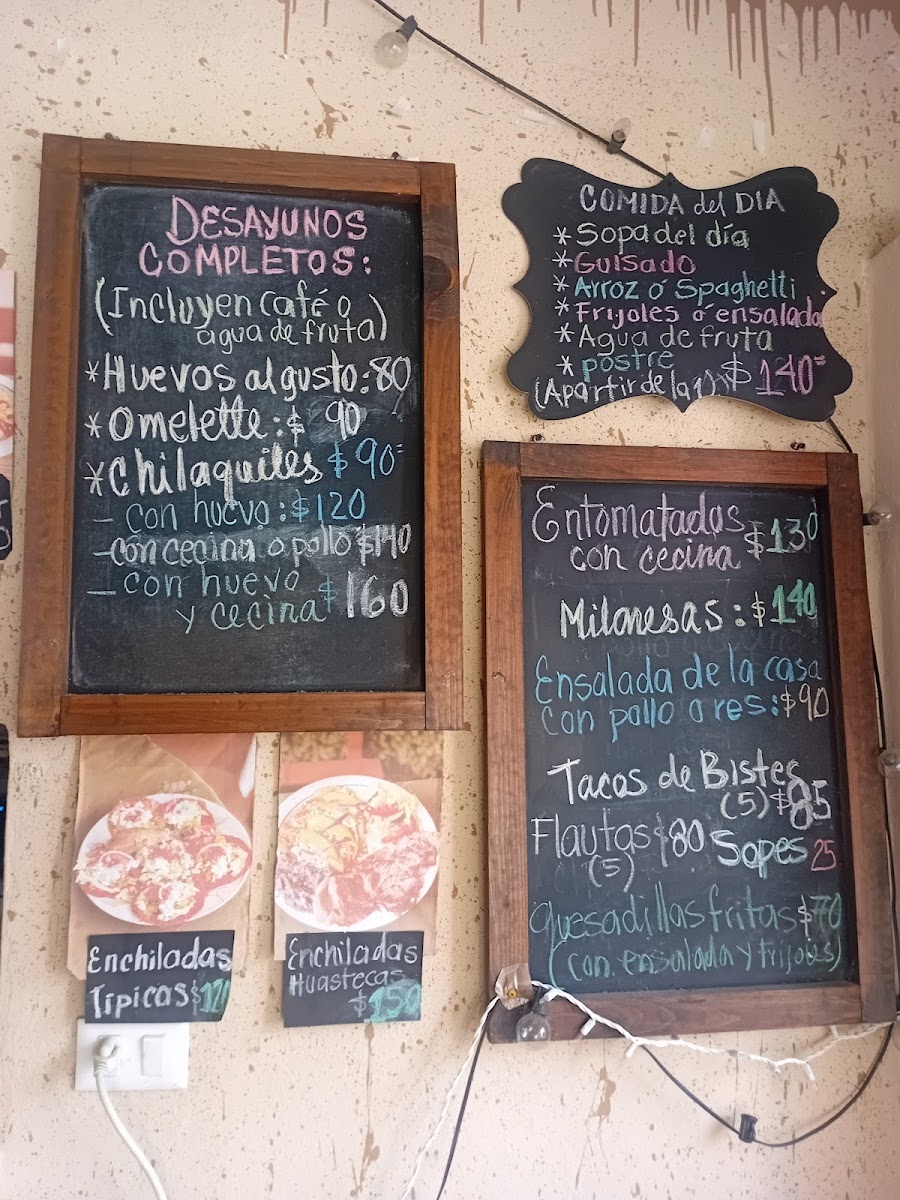 DESAYUNOS
COMPLETOS:
(Incluyen café o
agua de fruta)
*Huevos al gusto:80
*Omelette:$ 90
*Chilaquiles $90=
- con huevo:$120
-con cecina o pollo $140
- con huevo
y cecina $160
COMIDA del DIA
*Sopa del día
*Guisado
*Arroz ó Spaghetti
*Frijoles o ensalada
*Agua de fruta
*postre
(Apartir de la 1) $140=
Entomatadas
con cecina $130
Milanesas:$140
Ensalada de la casa
con pollo o res:$90
Tacos de Bistec
(5) $85
Flautas $80 Sopes 25
(5)
Quesadillas fritas $70
(con ensalada y frijoles)
Enchiladas
Tipicas $120
Enchiladas
Huastecas
$150